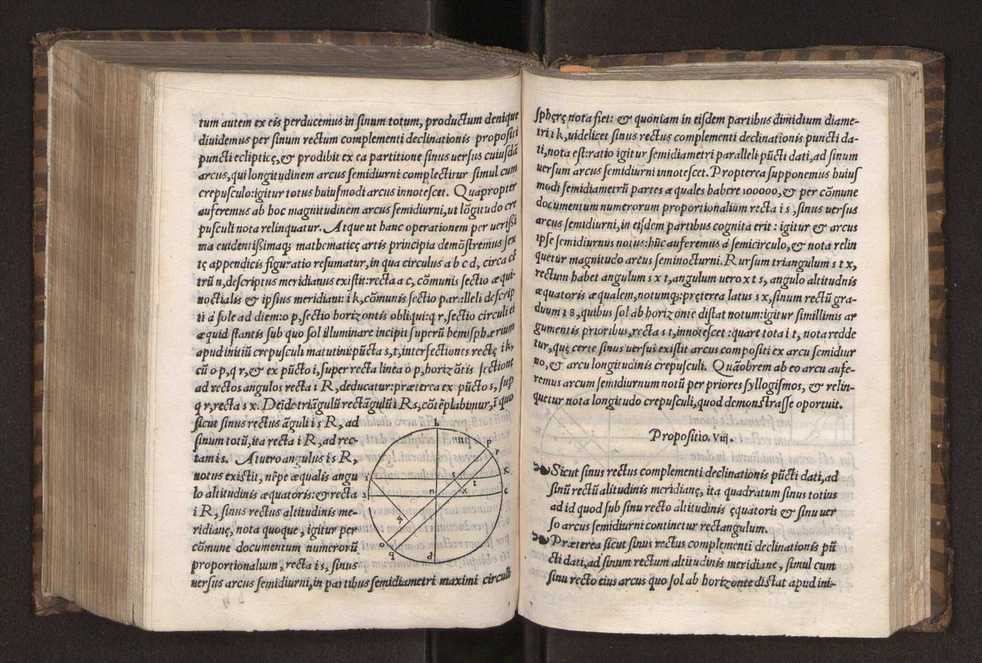 tum autem ex eis perducemus in sinum totum, productum denique
diuidemus per sinum rectum complementi declinationis propositi
puncti eclipticę, & prodibit ex ea partitione sinus uersus cuiusdã
arcus, qui longitudinem arcus semidiurni complectitur simul cum
crepusculo: igitur totus huiusmodi arcus innotescet. Quapropter
auferemus ab hoc magnitudinem arcus semidiurni, ut lõgitudo cre
pusculi nota relinquatur. Atque ut hanc operationem per uerissi
ma euidentissimaq; mathematicę artis principia demõstremus sex
tę appendicis figuratio resumatur, in qua circulus a b c d, circa cẽ
trũ n, descriptus meridianus existit: recta a c, cõmunis sectio æqui-
noctialis & ipsius meridiani: i k, cõmunis sectio paralleli descrip
ti à sole ad diem: o p, sectio horizontis obliqui: q r, sectio circuli ei
æquid stantis sub quo sol illuminare incipit superũ hemisphærium
apud initiũ crepusculi matutini: pũcta s, t, intersectiones rectę i k,
cũ o p, q r, & ex pũcto i, super recta linea o p, horizõtis sectione
ad rectos angulos recta i R, deducatur: præterea ex pũcto s, sup
q r, recta s x. Deĩde triãgulũ rectãgulũ i R s, cõtẽplabimur, ĩ quo
sicut sinus rectus ãguli i s R, ad
sinum totũ, ita recta i R, ad rec-
tam i s. At uero angulus i s R,
notus existit, nẽpe æqualis angu
lo altitudinis æquatoris: & recta
i R, sinus rectus altitudinis me-
ridianę, nota quoque, igitur per
cõmune documentum numerorũ
proportionalium, recta i s, sinus
uersus arcus semidiurni, in partibus semidiametri maximi circuli
b
p
r
k
i
s
t
a
n
x
c
q
o
q
d
sphęrę nota fiet: & quoniam in eisdem partibus dimidium diame-
tri i k, uidelicet sinus rectus complementi declinationis puncti da-
ti, nota est ratio igitur semidiametri paralleli pũcti dati, ad sinum
uersum arcus semidiurni innotescet. Propterea supponemus huius
modi semidiametrũ partes æquales habere 100000, & per cõmune
documentum numerorum proportionalium recta i s, sinus uersus
arcus semidiurni, in eisdem partibus cognita erit: igitur & arcus
ipse semidiurnus notus: hũc auferemus á semicirculo, & nota relin
quetur magnitudo arcus seminocturni. Rursum triangulum s t x,
rectum habet angulum s x t, angulum uero x t s, angulo altitudnis
æquatoris æqualem, notumq;: pręterea latus s x, sinum rectũ gra-
duum 18, quibus sol ab horizonte distat notum: igitur simillimis ar
gumentis prioribus, recta s t, innotescet: quare tota i t, nota redde
tur, quę certe sinus uersus existit arcus compositi ex arcu semidiur
no, & arcu longitudinis crepusculi. Quãobrem ab eo arcu aufe-
remus arcum semidiurnum notũ per priores syllogismos, & relin-
quetur nota longitudo crepusculi, quod demonstrasse oportuit.
Propositio. viij.
Sicut sinus rectus complementi declinationis pũcti dati, ad
sinũ rectũ altitudinis meridianę, ita quadratum sinus totius
ad id quod sub sinu recto altitudinis ęquatoris & sinu uer
so arcus semidiurni continetur rectangulum.
Præterea sicut sinus rectus complementi declinationis pũ
cti dati, ad sinum rectum altitudinis meridianę, simul cum
sinu recto eius arcus quo sol ab horizonte distat apud ini-